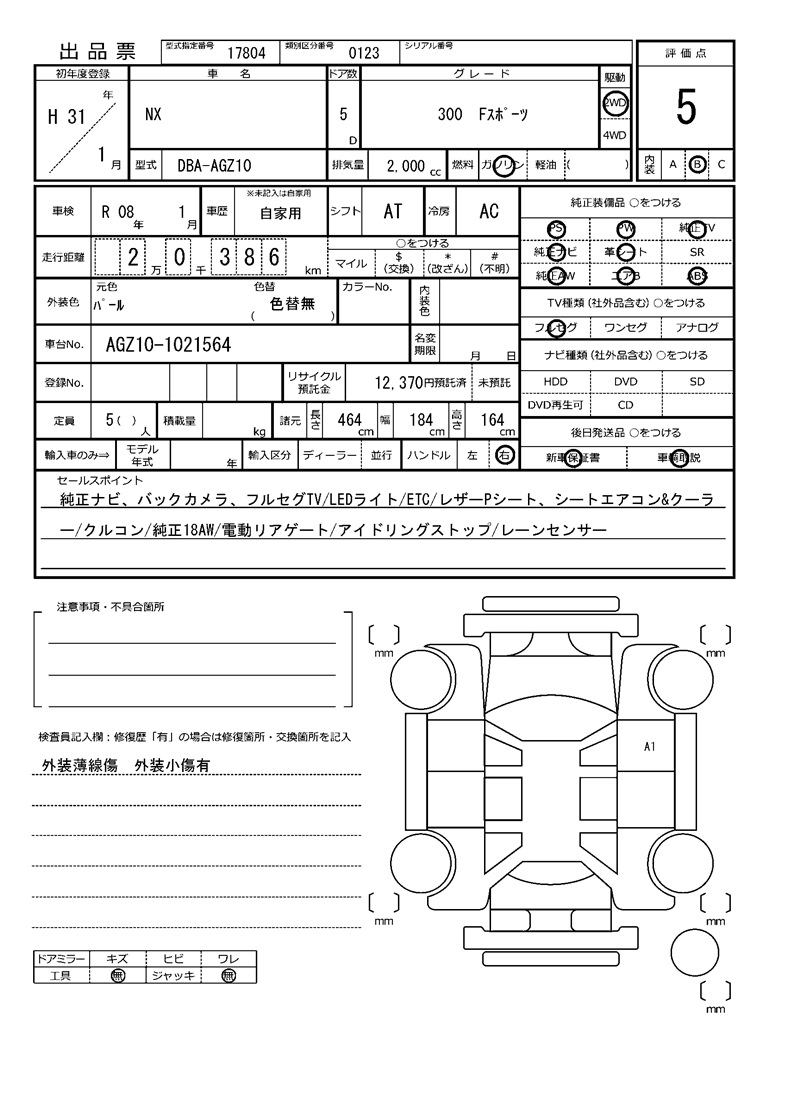 出品票
型式指定番号 17804 類別区分番号 0123 シリアル番号
評価点
初年度登録 車名 ドア数 グレード 駆動
H 31 年 NX 5 D 300 Fスポーツ 2WD 5
4WD
1 月 型式 DBA-AGZ10 排気量 2,000 cc 燃料 ガソリン 軽油 ( ) 内装 A B C
車検 R 08 年 1 月 車歴 ※未記入は自家用 自家用 シフト AT 冷房 AC
純正装備品 ○をつける
PS PW 純正TV
走行距離 2 万 0 千 3 8 6 km ○をつける
マイル $(交換) *(改ざん) #(不明)
純正ナビ 革シート SR
純正AW エアB ABS
外装色 元色 パール 色替 色替無 ( ) カラーNo. 内装色
TV種類(社外品含む)○をつける
フルセグ ワンセグ アナログ
車台No. AGZ10-1021564 名変期限 月 日
ナビ種類(社外品含む)○をつける
登録No. リサイクル預託金 12,370円預託済 未預託
HDD DVD SD
DVD再生可 CD
定員 5( )人 積載量 kg 諸元 長さ 464 cm 幅 184 cm 高さ 164 cm
後日発送品 ○をつける
輸入車のみ⇒ モデル年式 年 輸入区分 ディーラー 並行 ハンドル 左 右
新車保証書 車輌取説
セールスポイント
純正ナビ、バックカメラ、フルセグTV/LEDライト/ETC/レザーPシート、シートエアコン&クーラ
ー/クルコン/純正18AW/電動リアゲート/アイドリングストップ/レーンセンサー
注意事項・不具合箇所
mm mm
検査員記入欄：修復歴「有」の場合は修復箇所・交換箇所を記入
A1
外装薄線傷 外装小傷有
mm mm
ドアミラー キズ ヒビ ワレ
工具 無 ジャッキ 無
mm